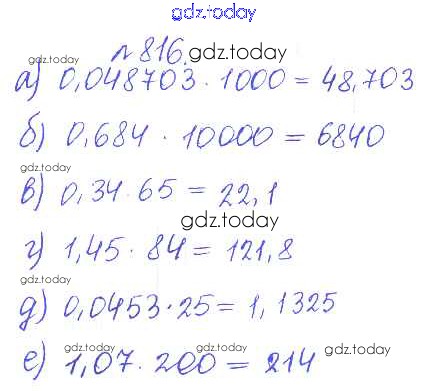 gdz.today
№ 816. gdz.today
а) 0,048703 · 1000 = 48,703
gdz.today
б) 0,684 · 10000 = 6840
gdz.today
в) 0,34 · 65 = 22,1
gdz.today
г) 1,45 · 84 = 121,8
gdz.today
д) 0,0453 · 25 = 1,1325
gdz.today gdz.today gdz.today
е) 1,07 · 200 = 214